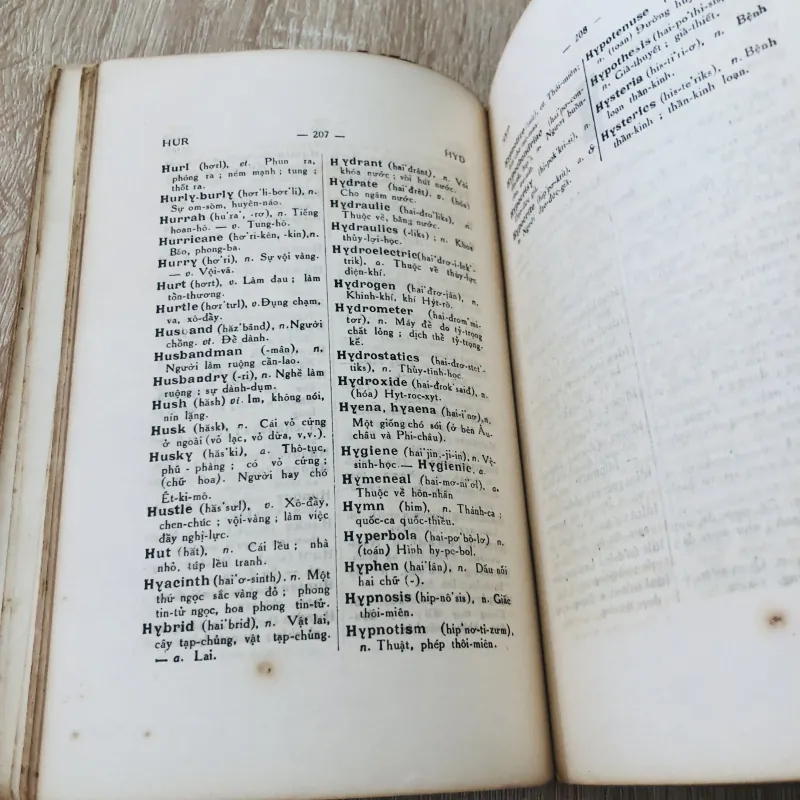 HUR
— 207 —
HYD
Hurl (hơrl), vt. Phun ra,
phóng ra ; ném mạnh ; tung ;
thốt ra.
Hurly-burly (hơr'li-bơr'li), n.
Sự om-sòm, huyên-náo.
Hurrah (hu'ra', -rơ), n. Tiếng
hoan-hô. — v. Tung-hô.
Hurricane (hơ'ri-kên, -kin), n.
Bão, phong-ba.
Hurry (hơ'ri), n. Sự vội vàng.
— v. Vội-vã.
Hurt (hơrt), v. Làm đau ; làm
tổn-thương.
Hurtle (hơr'tưl), v. Đụng chạm,
va, xô-đẩy.
Husband (hăz'bănd), n. Người
chồng. vt. Để dành.
Husbandman (-mân), n.
Người làm ruộng cần-lao.
Husbandry (-ri), n. Nghề làm
ruộng ; sự dành-dụm.
Hush (hăsh) vi. Im, không nói,
nín lặng.
Husk (hăsk), n. Cái vỏ cứng
ở ngoài (vỏ lạc, vỏ dừa, v,v.).
Husky (hăs'ki), a. Thô-tục,
phũ - phàng ; có vỏ cứng ;
(chữ hoa). Người hay chó
Ét-ki-mô.
Hustle (hăs'sưl), v. Xô-đẩy,
chen-chúc ; vội-vàng ; làm việc
đầy nghị-lực.
Hut (hăt), n. Cái lều ; nhà
nhỏ, túp lều tranh.
Hyacinth (hai'ơ-sinth), n. Một
thứ ngọc sắc vàng đỏ ; phong
tin-tử ngọc, hoa phong tin-tử.
Hybrid (hai'brid), n. Vật lai,
cây tạp-chủng, vật tạp-chủng.
— a. Lai.
Hydrant (hai'đrânt), n. Vòi
khóa nước ; vòi hút nước.
Hydrate (hai'đrêt), v. (hóa)
Cho ngậm nước.
Hydraulic (hai-đro'liks), n.
Thuộc về, bằng nước.
Hydraulics (-liks) ; n. Khoa
thủy-lợi-học.
Hydroelectric (hai'đrơ-i-lek'-
trik), a. Thuộc về thủy-lực
điện-khí.
Hydrogen (hai'đrơ-jân), n.
Khinh-khí, khí Hýt-rô.
Hydrometer (hai-đrom'mi-
tơr), n. Máy để đo tỷ-trọng
chất lỏng ; dịch thể tỷ-trọng
kế.
Hydrostatics (hai-đrơ-stet'-
tiks), n. Thủy-tĩnh-học.
Hydroxide (hai-đrok'said), n.
(hóa) Hyt-roc-xyt.
Hyena, hyaena (hai-i'nơ), n.
Một giống chó sói (ở bên Âu-
châu và Phi-châu).
Hygiene (hai'jin, -ji-in), n. Vệ-
sinh-học. — Hygienic, a.
Hymeneal (hai-mơ-ni'ơl), a.
Thuộc về hôn-nhân
Hymn (him), n. Thánh-ca ;
quốc-ca quốc-thiều.
Hyperbola (hai-pơ'bô-lơ) n.
(toán) Hình hy-pe-bol.
Hyphen (hai'fân), n. Dấu nối
hai chữ (-).
Hypnosis (hip-nô'sis), n. Giấc
thôi-miên.
Hypnotism (hip'nơ-ti-zưm),
n. Thuật, phép thôi-miên.
— 208 —
Hypotenuse
n. (toán) Đường
Hypothesis (hai-po'thi-sis),
n. Giả-thuyết ; giả-thiết.
Hysteria (his-ti'ri-ơ), n. Bệnh
loạn thần-kinh.
Hysterics (his-te'riks), n. Bệnh
thần-kinh ; thần-kinh loạn.